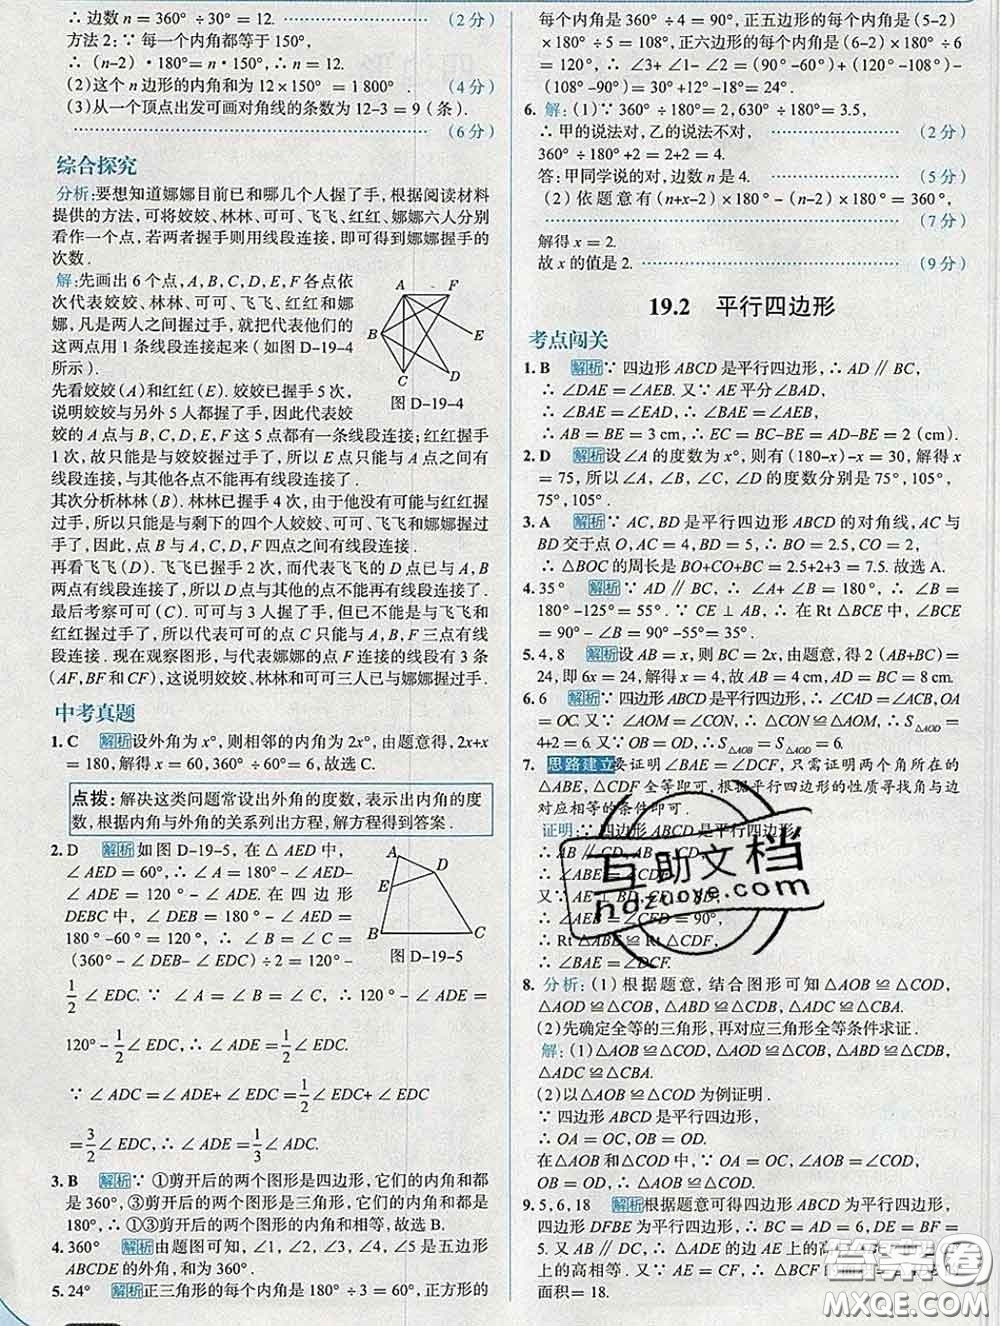 ∴ 边数 n = 360° ÷30° = 12. (2 分)
方法 2: ∵ 每一个内角都等于 150°,
∴ (n-2) · 180° = n · 150°, ∴ n = 12.
(2)这个 n 边形的内角和为 12×150° = 1 800°. (4 分)
(3)从一个顶点出发可画对角线的条数为 12-3 = 9 (条).
(6 分)
综合探究
分析:要想知道娜娜目前已和哪几个人握了手,根据阅读材料
提供的方法,可将姣姣、林林、可可、飞飞、红红、娜娜六人分别
看作一个点,若两者握手则用线段连接,即可得到娜娜握手的
次数.
解:先画出 6 个点,A,B,C,D,E,F 各点依
次代表姣姣、林林、可可、飞飞、红红和娜
娜,凡是两人之间握过手,就把代表他们的
点用 1 条线段连接起来(如图 D-19-4
所示).
先看姣姣(A)和红红(E). 姣姣已握手 5 次,
说明姣姣与另外 5 人都握了手,因此代表姣
姣的 A 点与 B,C,D,E,F 这 5 点都有一条线段连接;红红握手
1 次,故只能是与姣姣握了手,所以 E 点只能与 A 点有线段连
接,与其他各点不能再有线段连接.
其次分析林林(B). 林林已握手 4 次,由于他没有可能与红红
握手,所以只能是与剩下的四个人姣姣、可可、飞飞和娜娜握过
手了,因此,点 B 与 A,C,D,F 四点之间有线段连接.
再看飞飞(D). 飞飞已握手 2 次,而代表飞飞的 D 点已与 A,B
两点有线段连接了,所以 D 点与其他的点不能再有线段连接了.
最后考察可可(C). 可可与 3 人握了手,但已不能是与飞飞和
红红握过手了,所以代表可可的点 C 只能与 A,B,F 三点有线
段连接. 现在观察图形,与代表娜娜的点 F 连接的线段有 3 条
(AF,BF 和 CF),这说明姣姣、林林和可可三人已与娜娜握手.
A F
B E
C D
图 D-19-4
中考真题
1. C 解析 设外角为 x°,则相邻的内角为 2x°,由题意得,2x+x
= 180,解得 x = 60,360°÷60° = 6,故选 C.
点拨: 解决这类问题常设出外角的度数,表示出内角的度
数,根据内角与外角的关系列出方程,解方程得到答案.
2. D 解析 如图 D-19-5, 在 △ AED 中,
∠AED = 60°, ∴ ∠A = 180° - ∠AED-
∠ADE = 120° - ∠ADE. 在 四 边 形
DEBC 中, ∠ DEB = 180° - ∠ AED =
180° -60° = 120°, ∴ ∠ B = ∠ C =
(360° -∠DEB-∠EDC) ÷2 = 120° -
1/2 ∠ EDC. ∵ ∠ A = ∠ B = ∠ C, ∴ 120° - ∠ ADE =
120°-1/2∠ EDC, ∴ ∠ ADE = 1/2∠ EDC.
∵ ∠ ADC = ∠ ADE + ∠ EDC = 1/2∠ EDC + ∠ EDC
= 3/2∠ EDC, ∴ ∠ ADE = 1/3∠ ADC.
A
D
E
B C
图 D-19-5
3. B 解析 ∵ ①剪开后的两个图形是四边形,它们的内角和都
是 360°,③剪开后的两个图形是三角形,它们的内角和都是
180°,∴ ①③剪开后的两个图形的内角和相等,故选 B.
4. 360° 解析 由题图可知,∠1,∠2,∠3,∠4,∠5 是五边形
ABCDE 的外角,和为 360°.
5. 24° 解析 正三角形的每个内角是 180° ÷3 = 60°,正方形的
每个内角是 360° ÷ 4 = 90°, 正五边形的每个内角是 (5-2)
×180° ÷5 = 108°,正六边形的每个内角是 (6-2) ×180° ÷6
= 120°, ∴ ∠3+∠1-∠2 = (90°-60°)+(120°-108°)-
(108° -90°) = 30°+12°-18° = 24°.
6. 解: (1) ∵ 360° ÷180° = 2,630° ÷180° = 3.5,
∴ 甲的说法对,乙的说法不对, (2 分)
360° ÷180° +2 = 2+2 = 4.
答: 甲同学说的对,边数 n 是 4. (5 分)
(2) 依 题 意 有 (n+x-2) ×180° -(n-2) ×180° = 360°,
(7 分)
解得 x = 2.
故 x 的值是 2. (9 分)
19.2 平行四边形
考点闯关
1. B 解析 ∵ 四边形 ABCD 是平行四边形,∴ AD ∥ BC,
∴ ∠DAE = ∠AEB. 又∵ AE 平分∠BAD,
∴ ∠BAE = ∠EAD, ∴ ∠BAE = ∠AEB,
∴ AB = BE = 3 cm, ∴ EC = BC-BE = AD-BE = 2 (cm).
2. D 解析 设∠A 的度数为 x°, 则有 (180-x)-x = 30, 解得 x
= 75, 所以 ∠A, ∠B, ∠C, ∠D 的度数分别是 75°, 105°,
75°,105°.
3. A 解析 ∵ AC, BD 是平行四边形 ABCD 的对角线, AC 与
BD 交于点 O, AC = 4, BD = 5, ∴ BO = 2.5, CO = 2,
∴ △BOC 的周长是 BO+CO+BC = 2.5+2+3 = 7.5. 故选 A.
4. 35° 解析 ∵ AD ∥ BC, ∴ ∠A+ ∠B = 180°, ∴ ∠B =
180° -125° = 55°. ∵ CE ⊥ AB, ∴ 在 Rt △BCE 中, ∠BCE
= 90° - ∠B = 90° -55° = 35°.
5. 4, 8 解析 设 AB = x, 则 BC = 2x, 由题意, 得 2 (AB+BC) =
24,即 6x = 24,解得 x = 4,故 AB = DC = 4 cm,AD = BC = 8 cm.
6. 6 解析 ∵ 四边形 ABCD 是平行四边形,∴ ∠CAD = ∠ACB,OA
= OC. 又∵ ∠AOM = ∠CON, ∴ △CON ≌ △AOM, ∴ S△AOD =
4+2 = 6. 又∵ OB = OD, ∴ S△AOB = S△AOD = 6.
7. 思路建立 要证明 ∠BAE = ∠DCF, 只需证明两个角所在的
△ABE, △CDF 全等即可, 根据平行四边形的性质寻找角与边
对应相等的条件即可.
证明:∵ 四边形 ABCD 是平行四边形,
∴ AB ∥ CD, AB = CD,
∴
又∵ AE ⊥ BD,
∴ ∠AEB = ∠CFD = 90°,
∴ Rt △ABE ≌ △CDF,
∴ ∠BAE = ∠DCF.
8. 分析: (1) 根据题意, 结合图形可知 △AOB ≌ △COD,
△AOD ≌ △COB, △ABD ≌ △CDB, △ADC ≌ △CBA.
(2)先确定全等的三角形,再对应三角形全等条件求证.
解: (1) △AOB ≌ △COD, △AOD ≌ △COB, △ABD ≌ △CDB,
△ADC ≌ △CBA.
(2)以 △AOB ≌ △COD 为例证明.
∵ 四边形 ABCD 是平行四边形,
∴ OA = OC, OB = OD.
在△AOB 和△COD 中, ∵
∴ △AOB ≌ △COD.
9. 5, 6, 18 解析 根据题意可得四边形 ABCD 为平行四边形,
四边形 DFBE 为平行四边形, ∴ AD = BC = 6, DE = BF =
5. 又∵ AB ∥ DC, ∴ △ADE 的边 AE 上的高
上的高相等. 又∵ AE = CF, ∴
面积 = 18.
互助文档
hdzuoye.com
答案圈
MXQE.COM